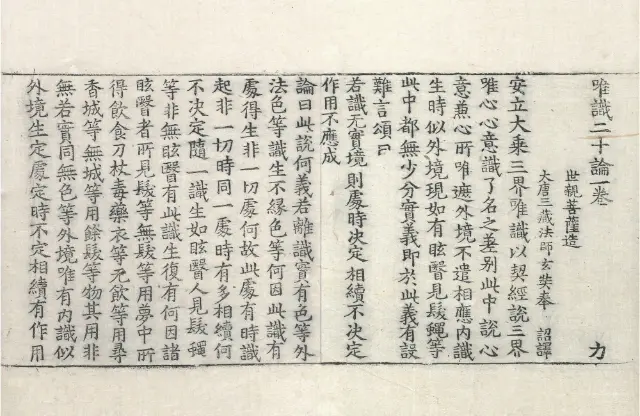 唯識二十論卷 力
世親菩薩造
大唐三藏法師玄奘奉 詔譯
安立大乘三界唯識以契經說三界
唯心心意識了名之差別此中說心
意兼心所唯遮外境不遣相應內識
生時似外境現如有眩瞖見髮蠅等
此中都無少分實義即於此義有設
難言頌曰
若識无實境 則處時決定 相續不決定
作用不應成
論曰此說何義若離識實有色等外
法色等識生不緣色等何因此識有
處得生非一切處何故此處有時識
起非一切時同一處時有多相續何
不決定隨一識生如眩瞖人見髮蠅
等非無眩瞖有此識生復有何因諸
眩瞖者所見髮等無髮等用夢中所
得飲食刀杖毒藥衣等无飲等用尋
香城等無城等用餘髮等物其用非
無若實同無色等外境唯有內識似
外境生定處定時不定相續有作用